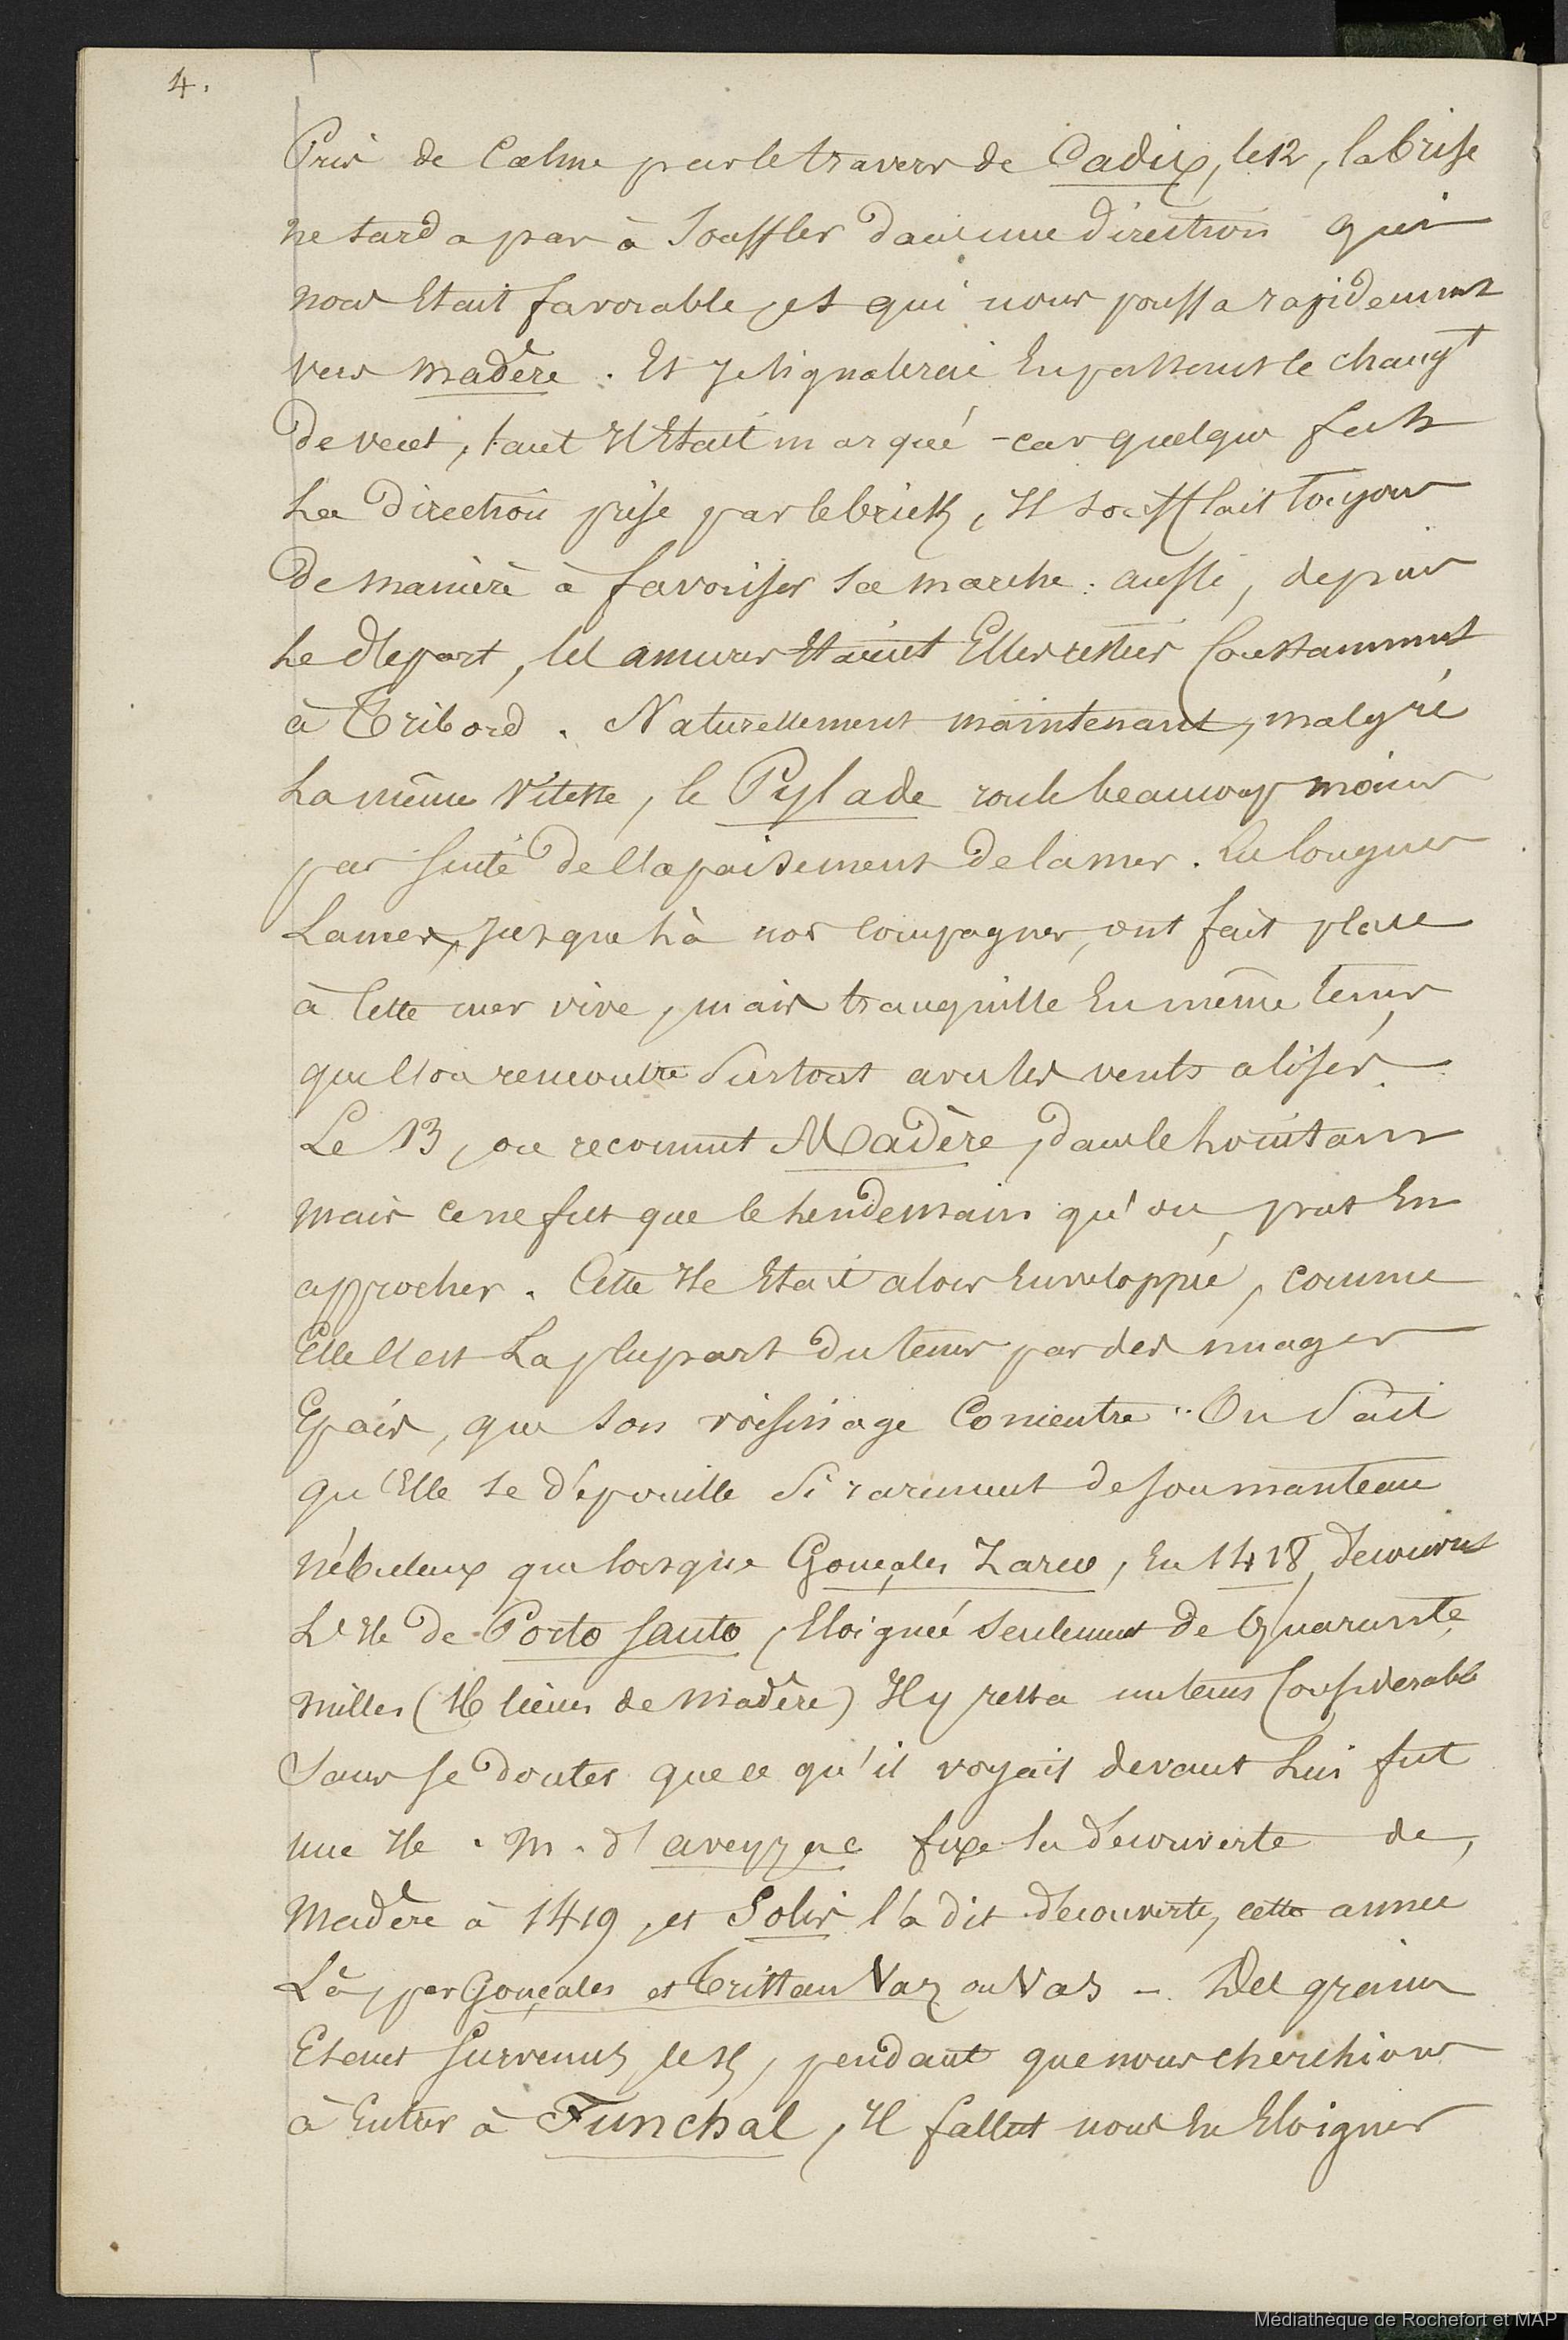 4.
Pris de Calme par le travers de Cadix, le 12, la brise
ne tarda pas à Souffler dans une direction qui
nous Etait favorable, et qui nous poussa rapidement
vers Madère. Et Je signalerai En passant le chang.t
de vent, tant Il Etait marqué - car quelque fut
La Direction prise par le brick, Il soufflait toujours
De manière à favoriser sa marche : aussi, depuis
Le Départ, les amures Etaient Elles restées Constamment
à Tribord. Naturellement maintenant, malgré
La même Vitesse, le Pylade roule beaucoup moins
par suite de l'apaisement de la mer. Les longues
Lames, Jusque là nos compagnes, ont fait place
à Cette mer vive, mais tranquille En même tems,
que l'on rencontre Surtout avec les vents alisés.
Le 13, on reconnut Madère, dans le Lointain
mais ce ne fut que le Lendemain qu'on put En
approcher. Cette Ile Etait alors Enveloppée, comme
Elle l'est La plupart du tems par des nuages
Epais, que son voisinage Concentre. On Sait
qu'Elle se dépouille Si rarement de son manteau
nébuleux que lorsque Gonçales Zarco, En 1418, découvrit
L'Ile de Porto Santo, Eloignée Seulement de Quarante
milles (16 lieues de Madère) Il y resta un tems Considerable
Sans se douter que ce qu'il voyait devant Lui fut
une Ile. M. d'aveyzac fixe la découverte de,
Madère à 1419, et Solis l'a dit découverte, cette année
Là, par Gonçales et Tristan Vaz ou Vas -. Des grains
Etant Survenus, pendant que nous cherchions
à Entrer à Funchal, Il fallut nous En Eloigner
Médiathèque de Rochefort et MAP